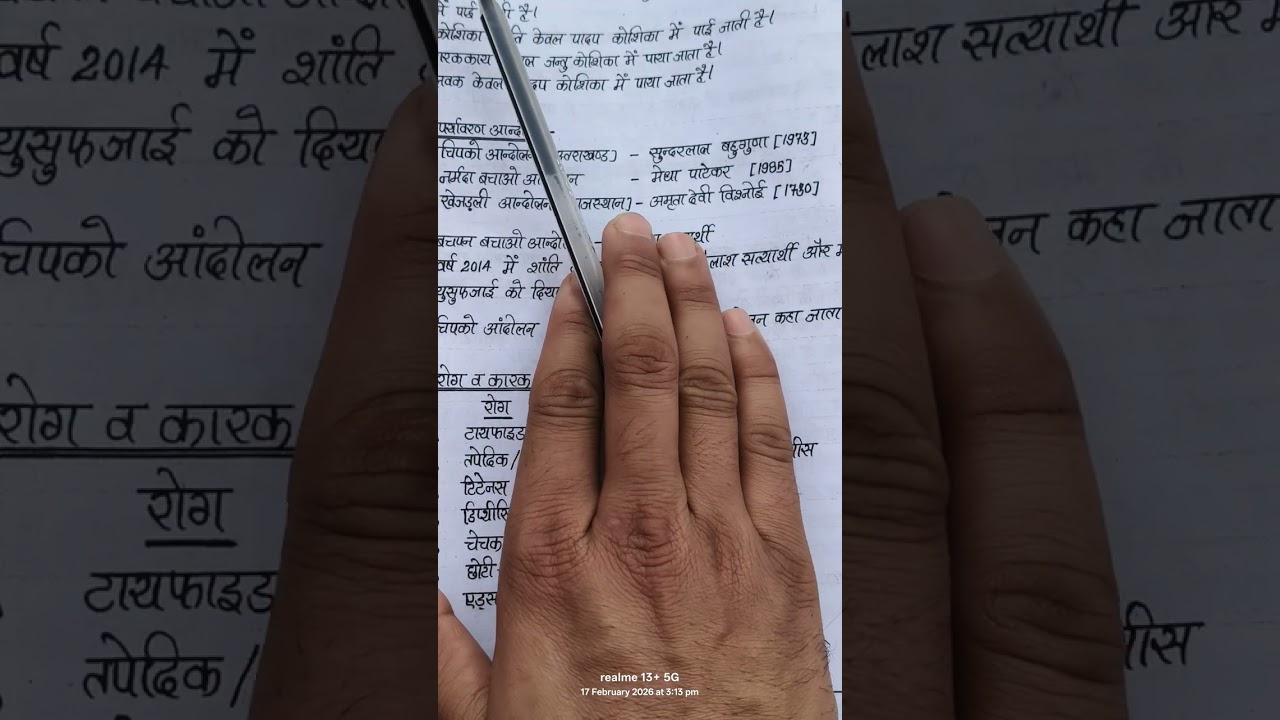 में पाई जाती है।
कोशिका केवल पादप कोशिका में पाई जाती है।
जन्तु कोशिका में पाया जाता है।
लवक केवल पादप कोशिका में पाया जाता है।
पर्यावरण आन्दो -
चिपको आन्दोलन उत्तराखण्ड] - सुन्दरलाल बहुगुणा [1973]
नर्मदा बचाओ आ न - मेधा पाटेकर [1985]
खेजड़ली आन्दोलन राजस्थान] - अमृता देवी विश्नोई [1730]
बचपन बचाओ आन्दो - र्थी
वर्ष 2014 में शांति लाश सत्यार्थी और म
युसुफजाई को दिया
चिपको आंदोलन लन कहा जाता
रोग व कारक
रोग
टायफाइड
तपेदिक / ीस
टिटेनस
डिप्थीरि
चेचक
छोटी
एड्स
realme 13+ 5G
17 February 2026 at 3:13 pm